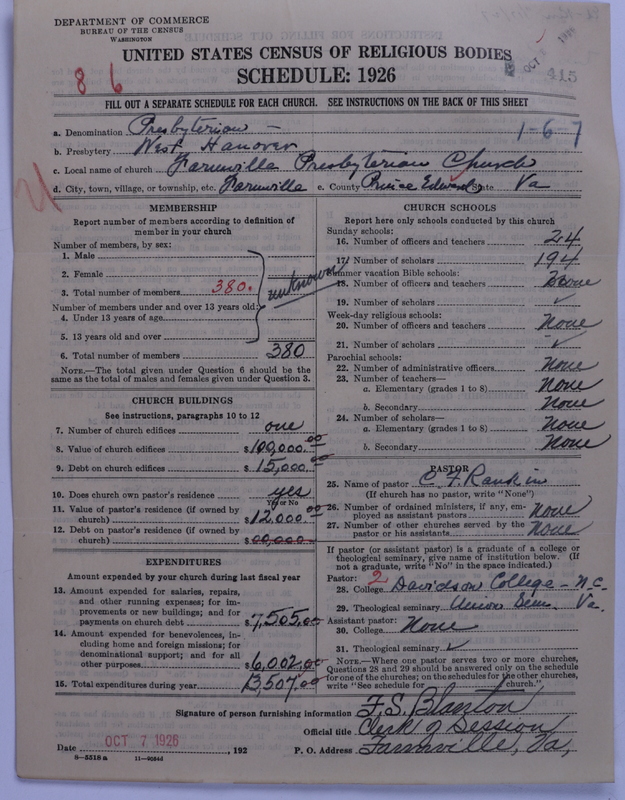 DEPARTMENT OF COMMERCE
BUREAU OF THE CENSUS
WASHINGTON
UNITED STATES CENSUS OF RELIGIOUS BODIES
SCHEDULE: 1926
8 6
OCT
415
FILL OUT A SEPARATE SCHEDULE FOR EACH CHURCH. SEE INSTRUCTIONS ON THE BACK OF THIS SHEET
1-6-7
a. Denomination Presbyterian
b. Presbytery West Hanover
c. Local name of church Farmville Presbyterian Church
d. City, town, village, or township, etc. Farmville e. County Prince Edward State Va
MEMBERSHIP
Report number of members according to definition of
member in your church
Number of members, by sex:
1. Male
2. Female
3. Total number of members 380.
unknown
Number of members under and over 13 years old:
4. Under 13 years of age
5. 13 years old and over
6. Total number of members 380
NOTE.—The total given under Question 6 should be
same as the total of males and females given under Question 3.
CHURCH BUILDINGS
See instructions, paragraphs 10 to 12
7. Number of church edifices one
8. Value of church edifices $100,000.00
9. Debt on church edifices $15,000.00
10. Does church own pastor's residence yes
Yes or No
11. Value of pastor's residence (if owned by
church) $12,000.00
12. Debt on pastor's residence (if owned by
church) $00,000.
EXPENDITURES
Amount expended by your church during last fiscal year
13. Amount expended for salaries, repairs,
and other running expenses; for im-
provements or new buildings; and for
payments on church debt $7,505.00
14. Amount expended for benevolences, in-
cluding home and foreign missions; for
denominational support; and for all
other purposes $6,002.00
15. Total expenditures during year 13,507.00
CHURCH SCHOOLS
Report here only schools conducted by this church
Sunday schools:
16. Number of officers and teachers 24
17. Number of scholars 194
Summer vacation Bible schools:
18. Number of officers and teachers None
19. Number of scholars ✓
Week-day religious schools:
20. Number of officers and teachers None
21. Number of scholars ✓
Parochial schools:
22. Number of administrative officers None
23. Number of teachers—
a. Elementary (grades 1 to 8) None
b. Secondary None
24. Number of scholars—
a. Elementary (grades 1 to 8) None
b. Secondary None
PASTOR
25. Name of pastor C. F. Rankin
(If church has no pastor, write "None")
26. Number of ordained ministers, if any, em-
ployed as assistant pastors None
27. Number of other churches served by the
pastor or his assistants None
If pastor (or assistant pastor) is a graduate of a college or
theological seminary, give name of institution below. (If
not a graduate, write "No" in the space indicated.)
Pastor: 2
28. College Davidson College - N.C.
29. Theological seminary Union Sem. Va.
Assistant pastor:
30. College None
31. Theological seminary ✓
NOTE.—Where one pastor serves two or more churches,
Questions 28 and 29 should be answered only on the schedule
for one of the churches; on the schedules for the other churches,
write "See schedule for church."
Signature of person furnishing information F. S. Blanton
Official title Clerk of Session
Date OCT 7 1926, 192 P. O. Address Farmville, Va,
8-5518 a 11-9054d